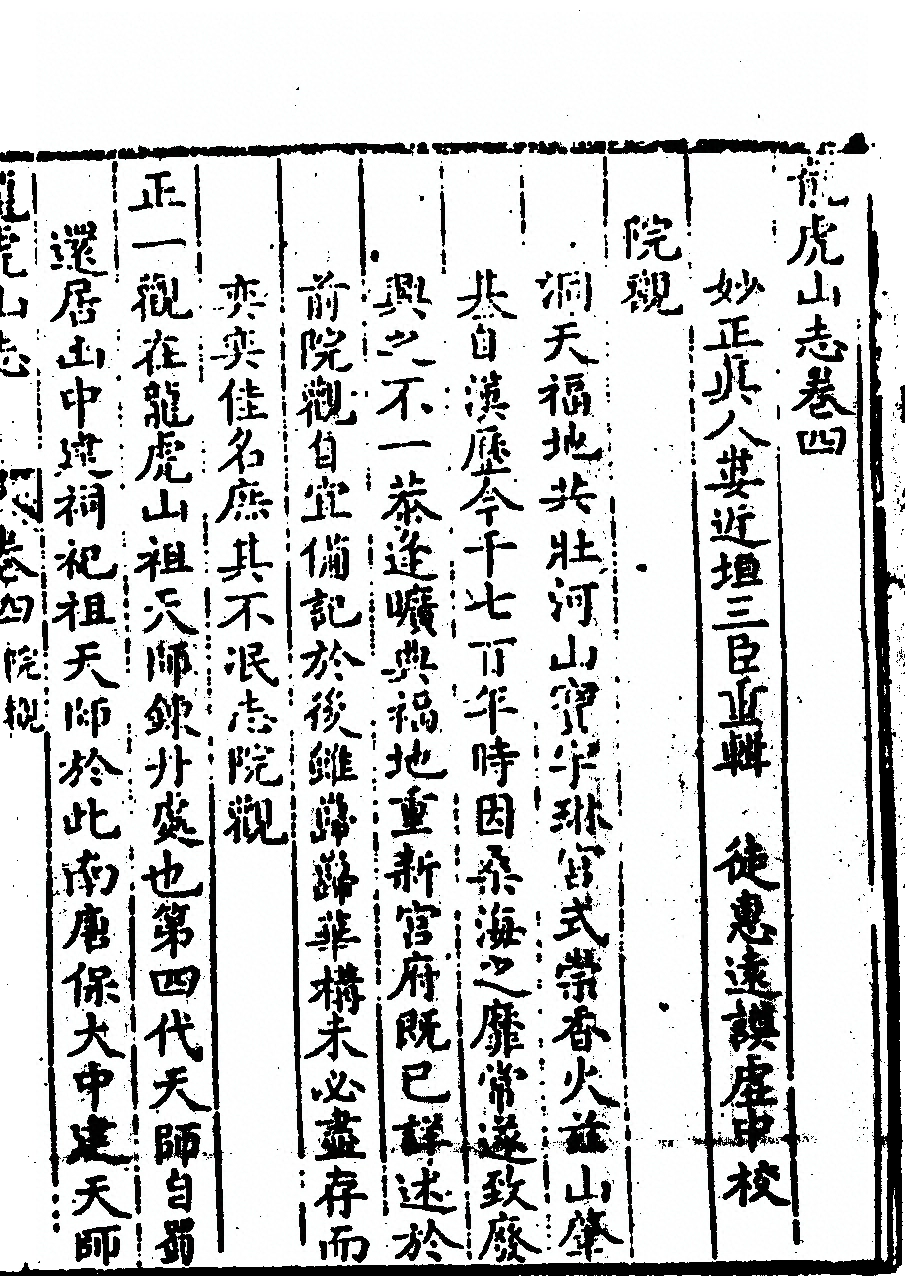 龍虎山志卷四
妙正眞人婁近垣三臣重輯　徒惠遠謨虛中校
院觀
洞天福地共壯河山寶宇琳宮式崇香火兹山肇
基自漢歷今千七百年時因桑海之靡常遂致廢
興之不一恭逢曠典福地重新宮府既已詳述於
前院觀自宜備記於後雖歸歸華構未必盡存而
奕奕佳名庶其不泯志院觀
正一觀在龍虎山祖天師鍊丹處也第四代天師自蜀
還居山中建祠祀祖天師於此南唐保大中建天師
龍虎山志　卷四院觀